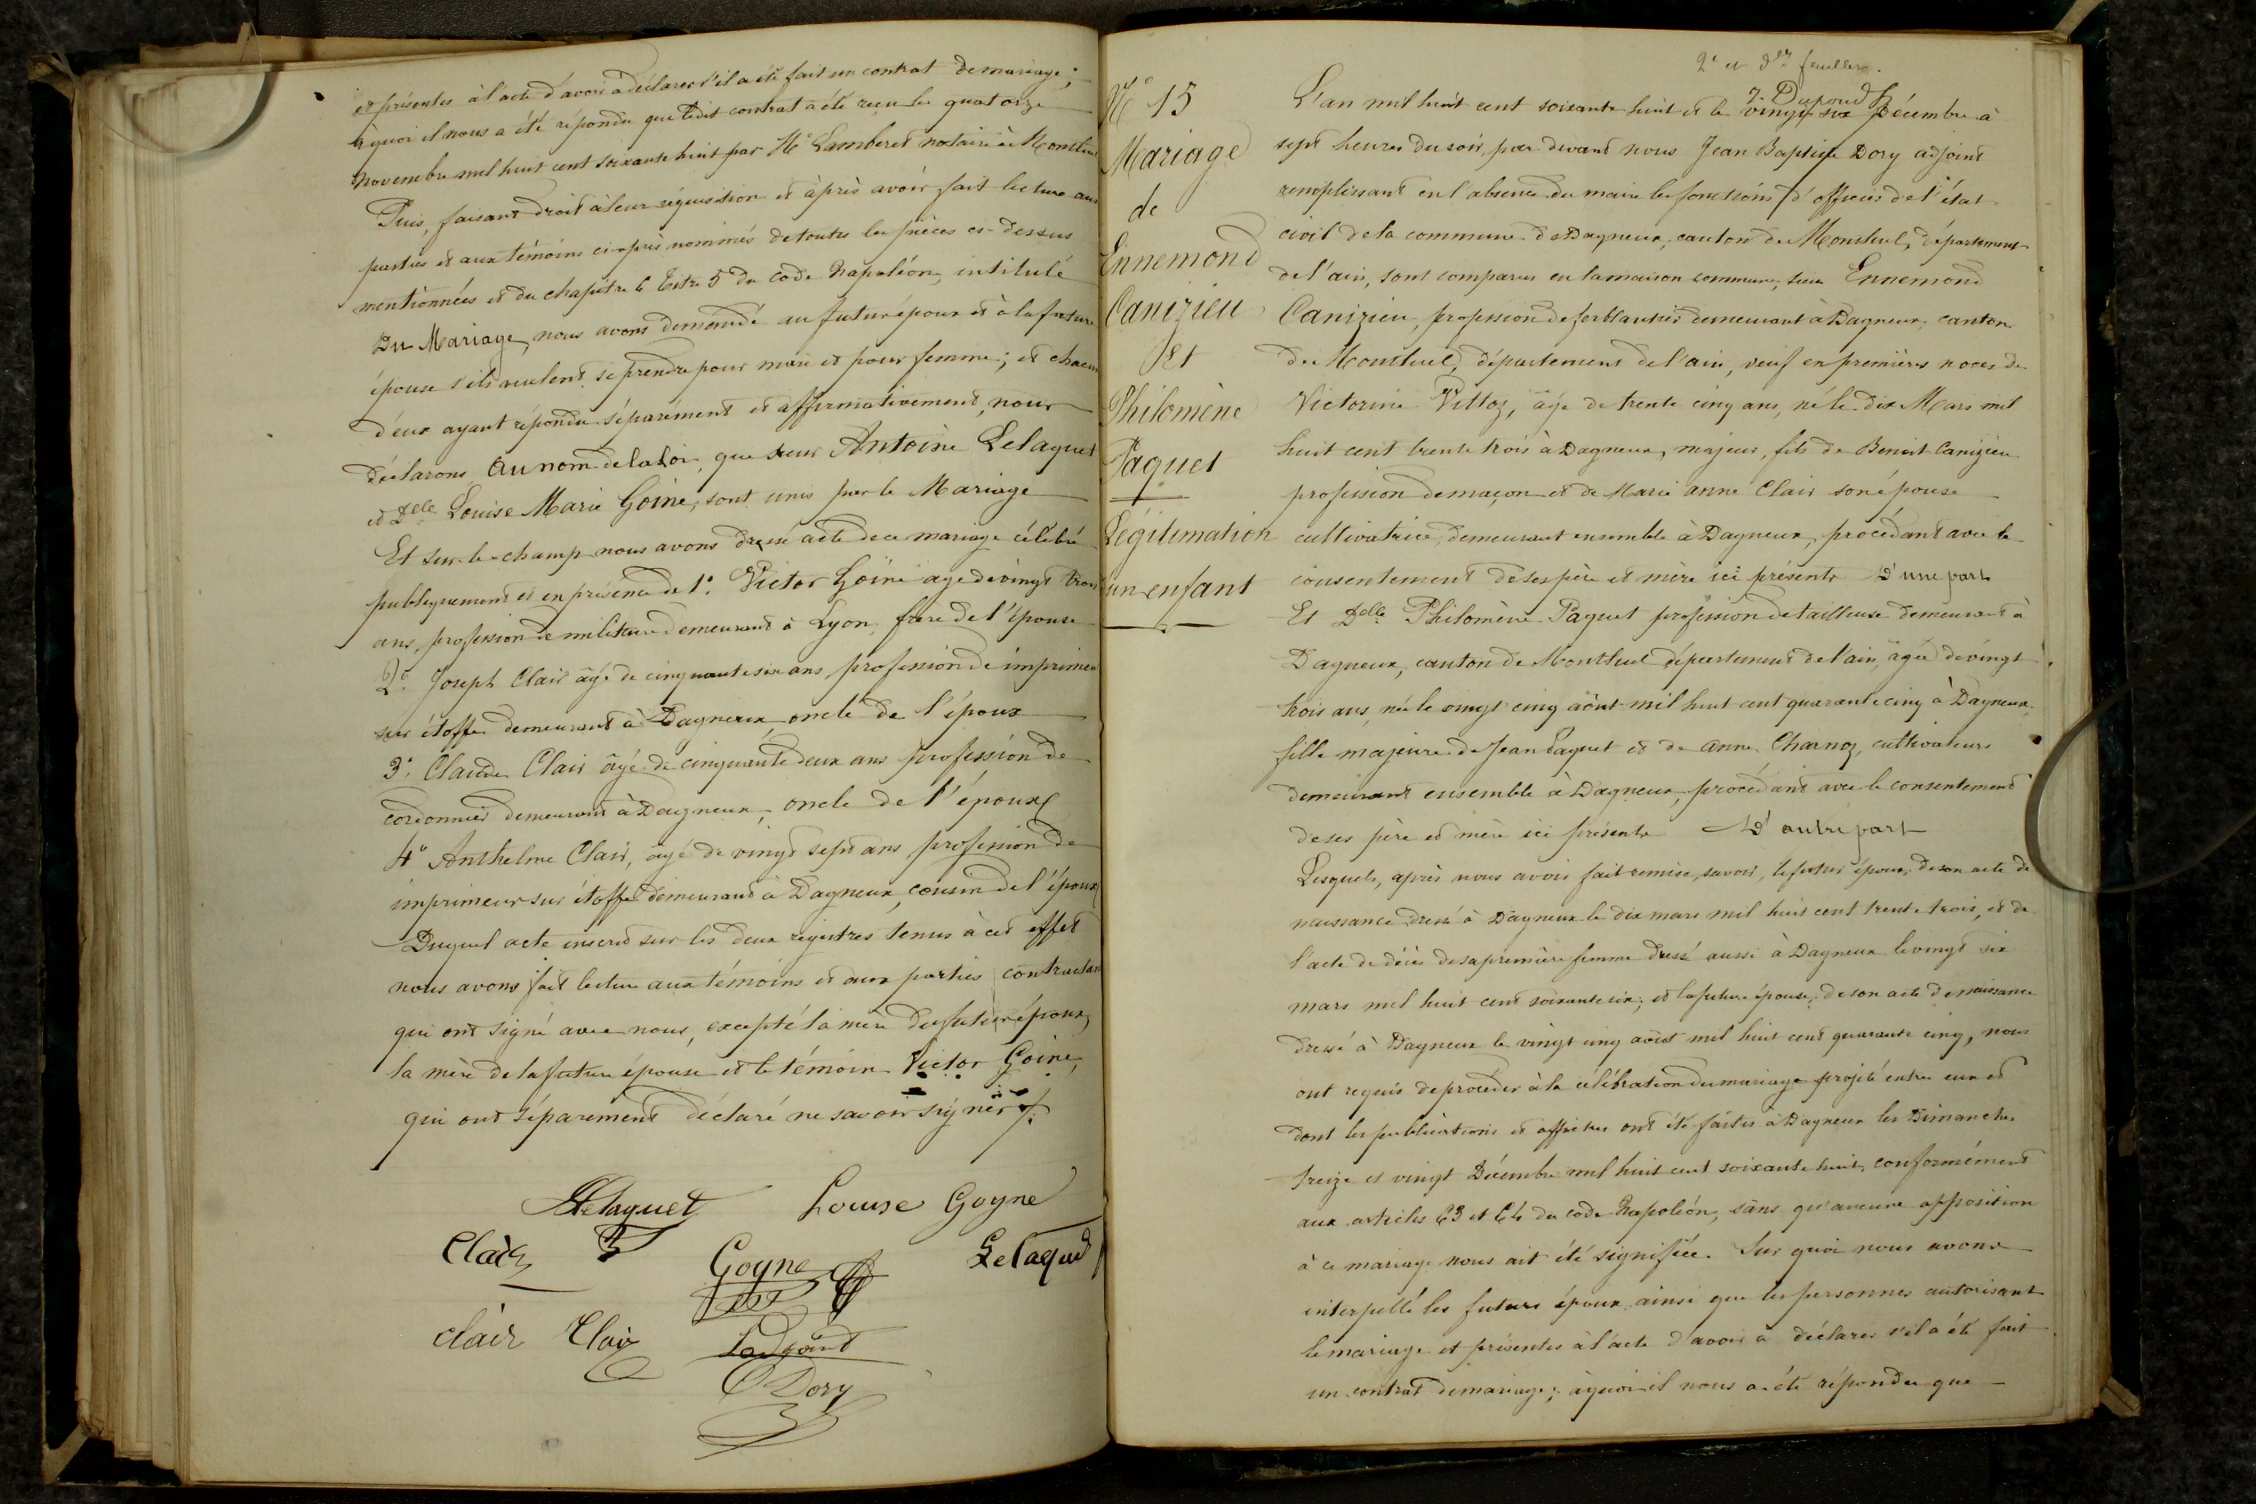 et présentes à l'acte d'avoir à déclarer s'il a été fait un contrat de mariage;
à quoi il nous a été répondu que ledit contrat a été reçu le quatorze
Novembre mil huit cent soixante huit par Me Lamberet notaire à Montluel
Puis, faisant droit à leur réquisition et après avoir fait lecture aux
parties et aux témoins ci-après nommés de toutes les pièces ci-dessus
mentionnées et du chapitre 6 titre 5 du code Napoléon, intitulé
Du Mariage, nous avons demandé au futur époux et à la future
épouse s'ils veulent se prendre pour mari et pour femme; et chacun
d'eux ayant répondu séparément et affirmativement, nous
déclarons au nom de la loi, que sieur Antoine Lelaquet
et Delle Louise Marie Goine, sont unis par le Mariage
Et sur-le-champ nous avons dressé acte de ce mariage célébré
publiquement et en présence de 1° Victor Goine agé de vingt trois
ans, profession de militaire demeurant à Lyon, frère de l'épouse
2° Joseph Clair âgé de cinquante six ans profession de imprimeur
sur étoffes demeurant à Dagneux oncle de l'époux
3° Claude Clair âgé de cinquante deux ans profession de
cordonnier demeurant à Dagneux, oncle de l'époux
4° Anthelme Clair, âgé de vingt sept ans profession de
imprimeur sur étoffe demeurant à Dagneux, cousin de l'époux
Duquel acte inscrit sur les deux registres tenus à cet effet
nous avons fait lecture aux témoins et aux parties contractan
qui ont signé avec nous, excepté la mère du futur époux,
la mère de la future épouse et le témoin Victor Goine,
qui ont séparement déclaré ne savoir signer
Lelaquet Louise Goyne
Clair Goyne Lelaquet
Clair Clair
Dory
2e et der feuillet.
J. Dupond
N° 15
Mariage
de
Ennemond
Canizieu
Et
Philomène
Paquet
Légitimation
un enfant
L'an mil huit cent soixante huit et le vingt six Décembre à
sept heures du soir, par devant nous Jean Baptiste Dory adjoint
remplissant en l'absence du maire les fonctions d'officier de l'état
civil de la commune de Dagneux, canton de Montluel, département
de l'ain, sont comparus en la maison commune, sieur Ennemond
Canizieu, profession de ferblantier demeurant à Dagneux, canton
de Montluel, département de l'ain, veuf en premières noces de
Victorine Pittoz, âgé de trente cinq ans, né le dix Mars mil
huit cent trente trois à Dagneux, majeur, fils de Benoit Canizieu
profession de maçon et de Marie anne Clair son épouse
cultivatrice, demeurant ensemble à Dagneux, procédant avec le
consentement de ses père et mère ici présents D'une part
Et Delle Philomène Paquet profession de tailleuse demeurant à
Dagneux, canton de Montluel département de l'ain, âgée de vingt
trois ans, née le vingt cinq août mil huit cent quarante cinq à Dagneux
fille majeure de Jean Paquet et de anne Charnoz, cultivateurs
demeurant ensemble à Dagneux, procédant avec le consentement
de ses père et mère ici présents D'autre part
Lesquels, après nous avoir fait remise, savoir, le futur époux, de son acte de
naissance dressé à Dagneux le dix mars mil huit cent trente trois, et de
l'acte de décès de sa première femme dressé aussi à Dagneux le vingt six
mars mil huit cent soixante six; et la future épouse, de son acte de naissance
dressé à Dagneux le vingt cinq août mil huit cent quarante cinq, nous
ont requis de procéder à la célébration du mariage projeté entre eux et
dont les publications et affiches ont été faites à Dagneux les Dimanches
treize et vingt Décembre mil huit cent soixante huit, conformément
aux articles 63 et 64 du code Napoléon, sans qu'aucune opposition
à ce mariage nous ait été signifiée. Sur quoi nous avons
interpellé les futurs époux ainsi que les personnes autorisant
le mariage et présentes à l'acte d'avoir à déclarer s'il a été fait
un contrat de mariage; à quoi il nous a été répondu que